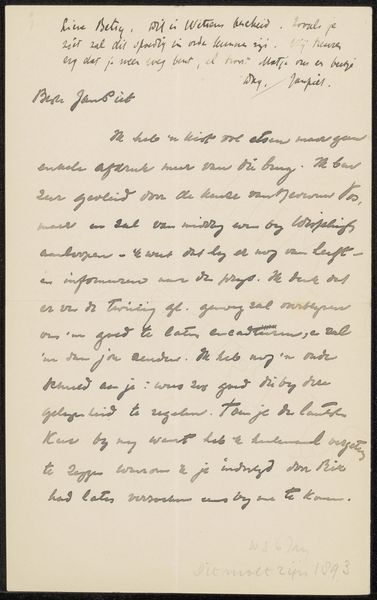 Lieve Betsy, dit is Witsens bescheid. Zooals je
ziet zal dit spoedig in orde kunnen zijn. Wij
erg dat je weer weg bent, al troost Matje ons een beetje
Dag. Janpiet.
Beste Jan Piet
Ik heb 'n kist vol etsen maar geen
enkele afdruk meer van die brug. Ik ben
zeer gevleid door de keuze van Mevrouw Vos,
maar en zal van middag even bij
aanloopen – 'k weet dat hij er nog van heeft –
en informeeren naar de prijs. Ik denk dat
er van de twintig gl. genoeg zal overblijven
om 'm goed te laten encadreeren, e zal
'm dan jou zenden. Ik heb nog 'n oude
schuld aan je: wees zoo goed die bij deze
gelegenheid te regelen. Toen je de laatste
keer bij mij waart heb 'k heelemaal vergeten
te zeggen waarom 'k je indertijd door Bik
had laten verzoeken eens bij me te komen.
W S 6 Jan
Dit moet zijn 1893